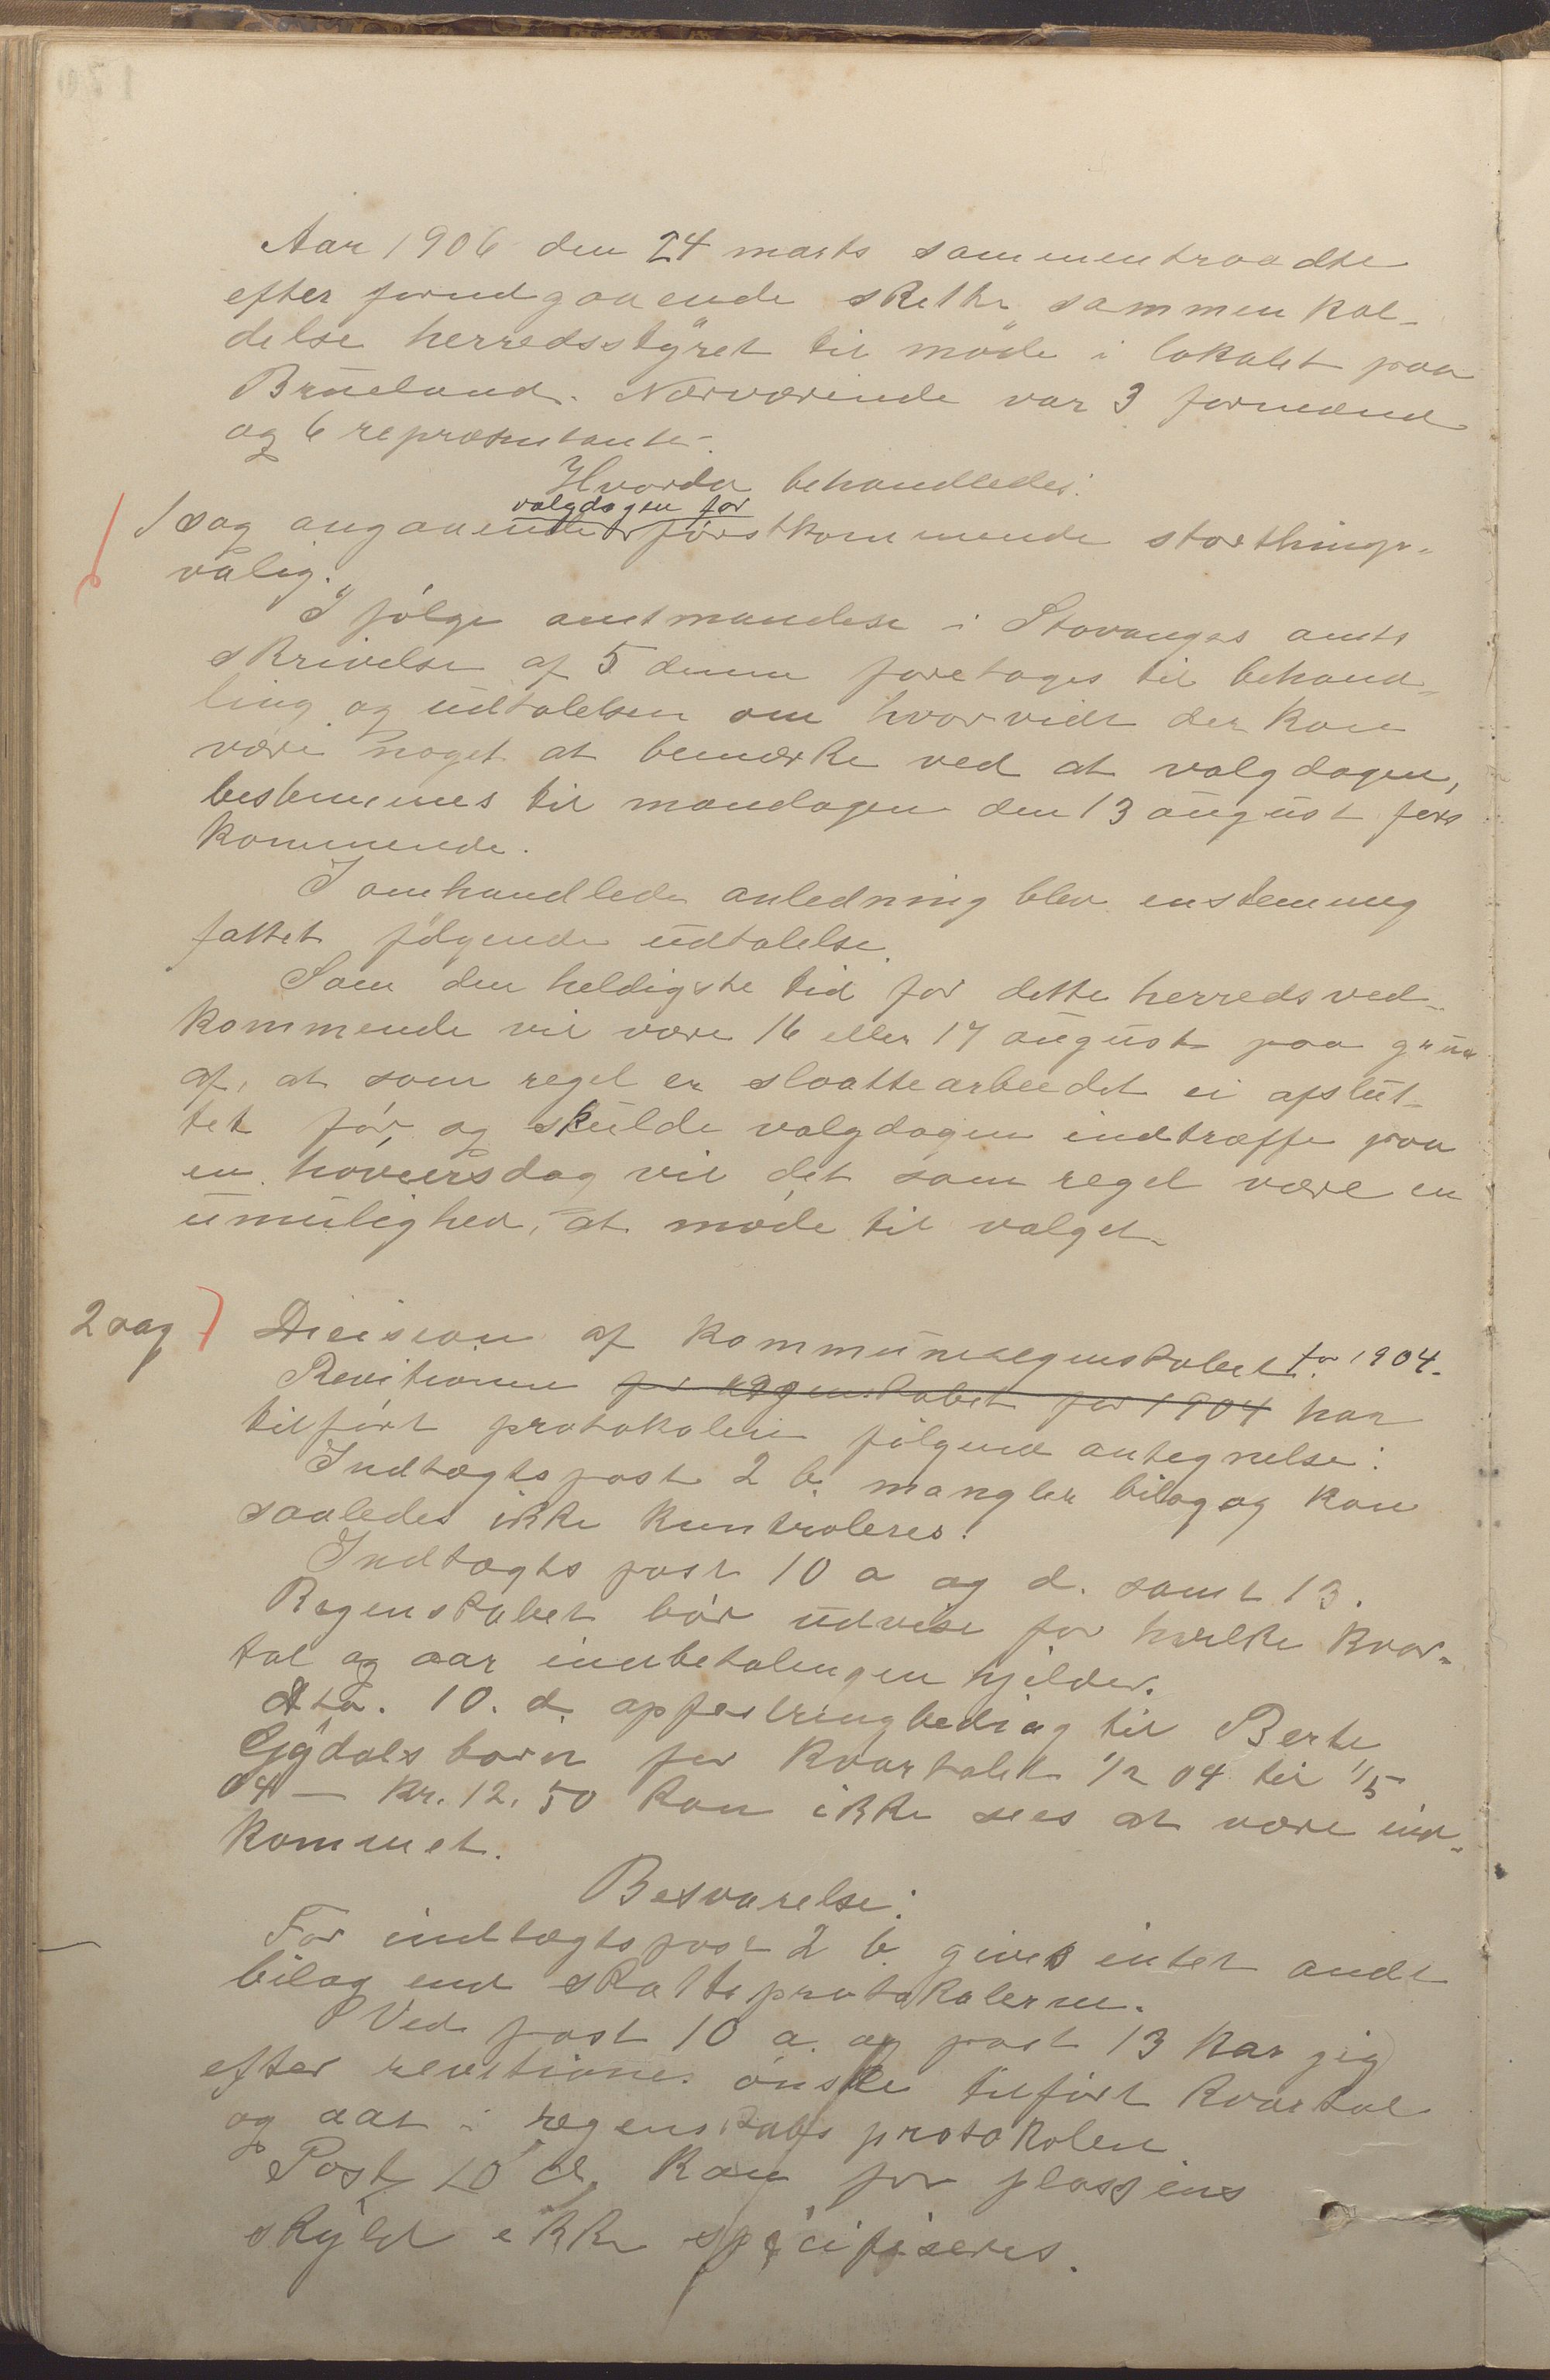 Aar 1906 den 24 marts sammentraadte
efter forudgaaende skettr sammenkal-
delse herredsstyret til møde i lokalet paa
Brueland. Nærværende var 3 formænd
og 6 repræsentanter.
Hvorda behandledes:
valgdagen for
1 sag angaaende førstkommende storthings-
valg.
I følge amtmandens i Stavanger amts
skrivelse af 5 denne foretages til behand-
ling og udtalelsen om hvorvidt der kan
være noget at bemærke ved at valgdagen,
bestemmes til mandagen den 13 august først
kommende.
I omhandlede anledning blev enstemmig
fattet følgende udtalelse.
Som den heldigste tid for dette herredsved-
kommende vil være 16 eller 17 august paa grund
af, at som regel er slaattearbeedet ei afslut-
tet før, og skulde valgdagen indtræffe paa
en hoveersdag vil det som regel være en
umulighed, at møde til valget.
2 sag Dicision af kommuneregenskabet for 1904.
Revitionen for regenskabet for 1904 har
tilført protokolen følgend antegnelse:
Indtægtspost 2 b. mangler bilag og kan
saaledes ikke kuntroleres.
Indtægts post 10 a og d. samt 13.
Regenskabet bør udvise for hvilke kvar-
tal og aar innbetalingen hjelder.
Dto. 10. d. opfostringbedrag til Berte
Gydals barn for kvartalet 1/2 04 til 1/5
04 — kr. 12,50 kan ikke sees at være ind-
kommet.
Besvarelse:
For indtægtspost 2 b gives intet andt
bilag end skatteprotokolerne.
Ved post 10 a. og post 13 har jeg
efter revitiones ønske tilført kvartal
og aar i regenskabs protokolen
Post 10 d. kan for plassens
skyld ikke spècifiseres.